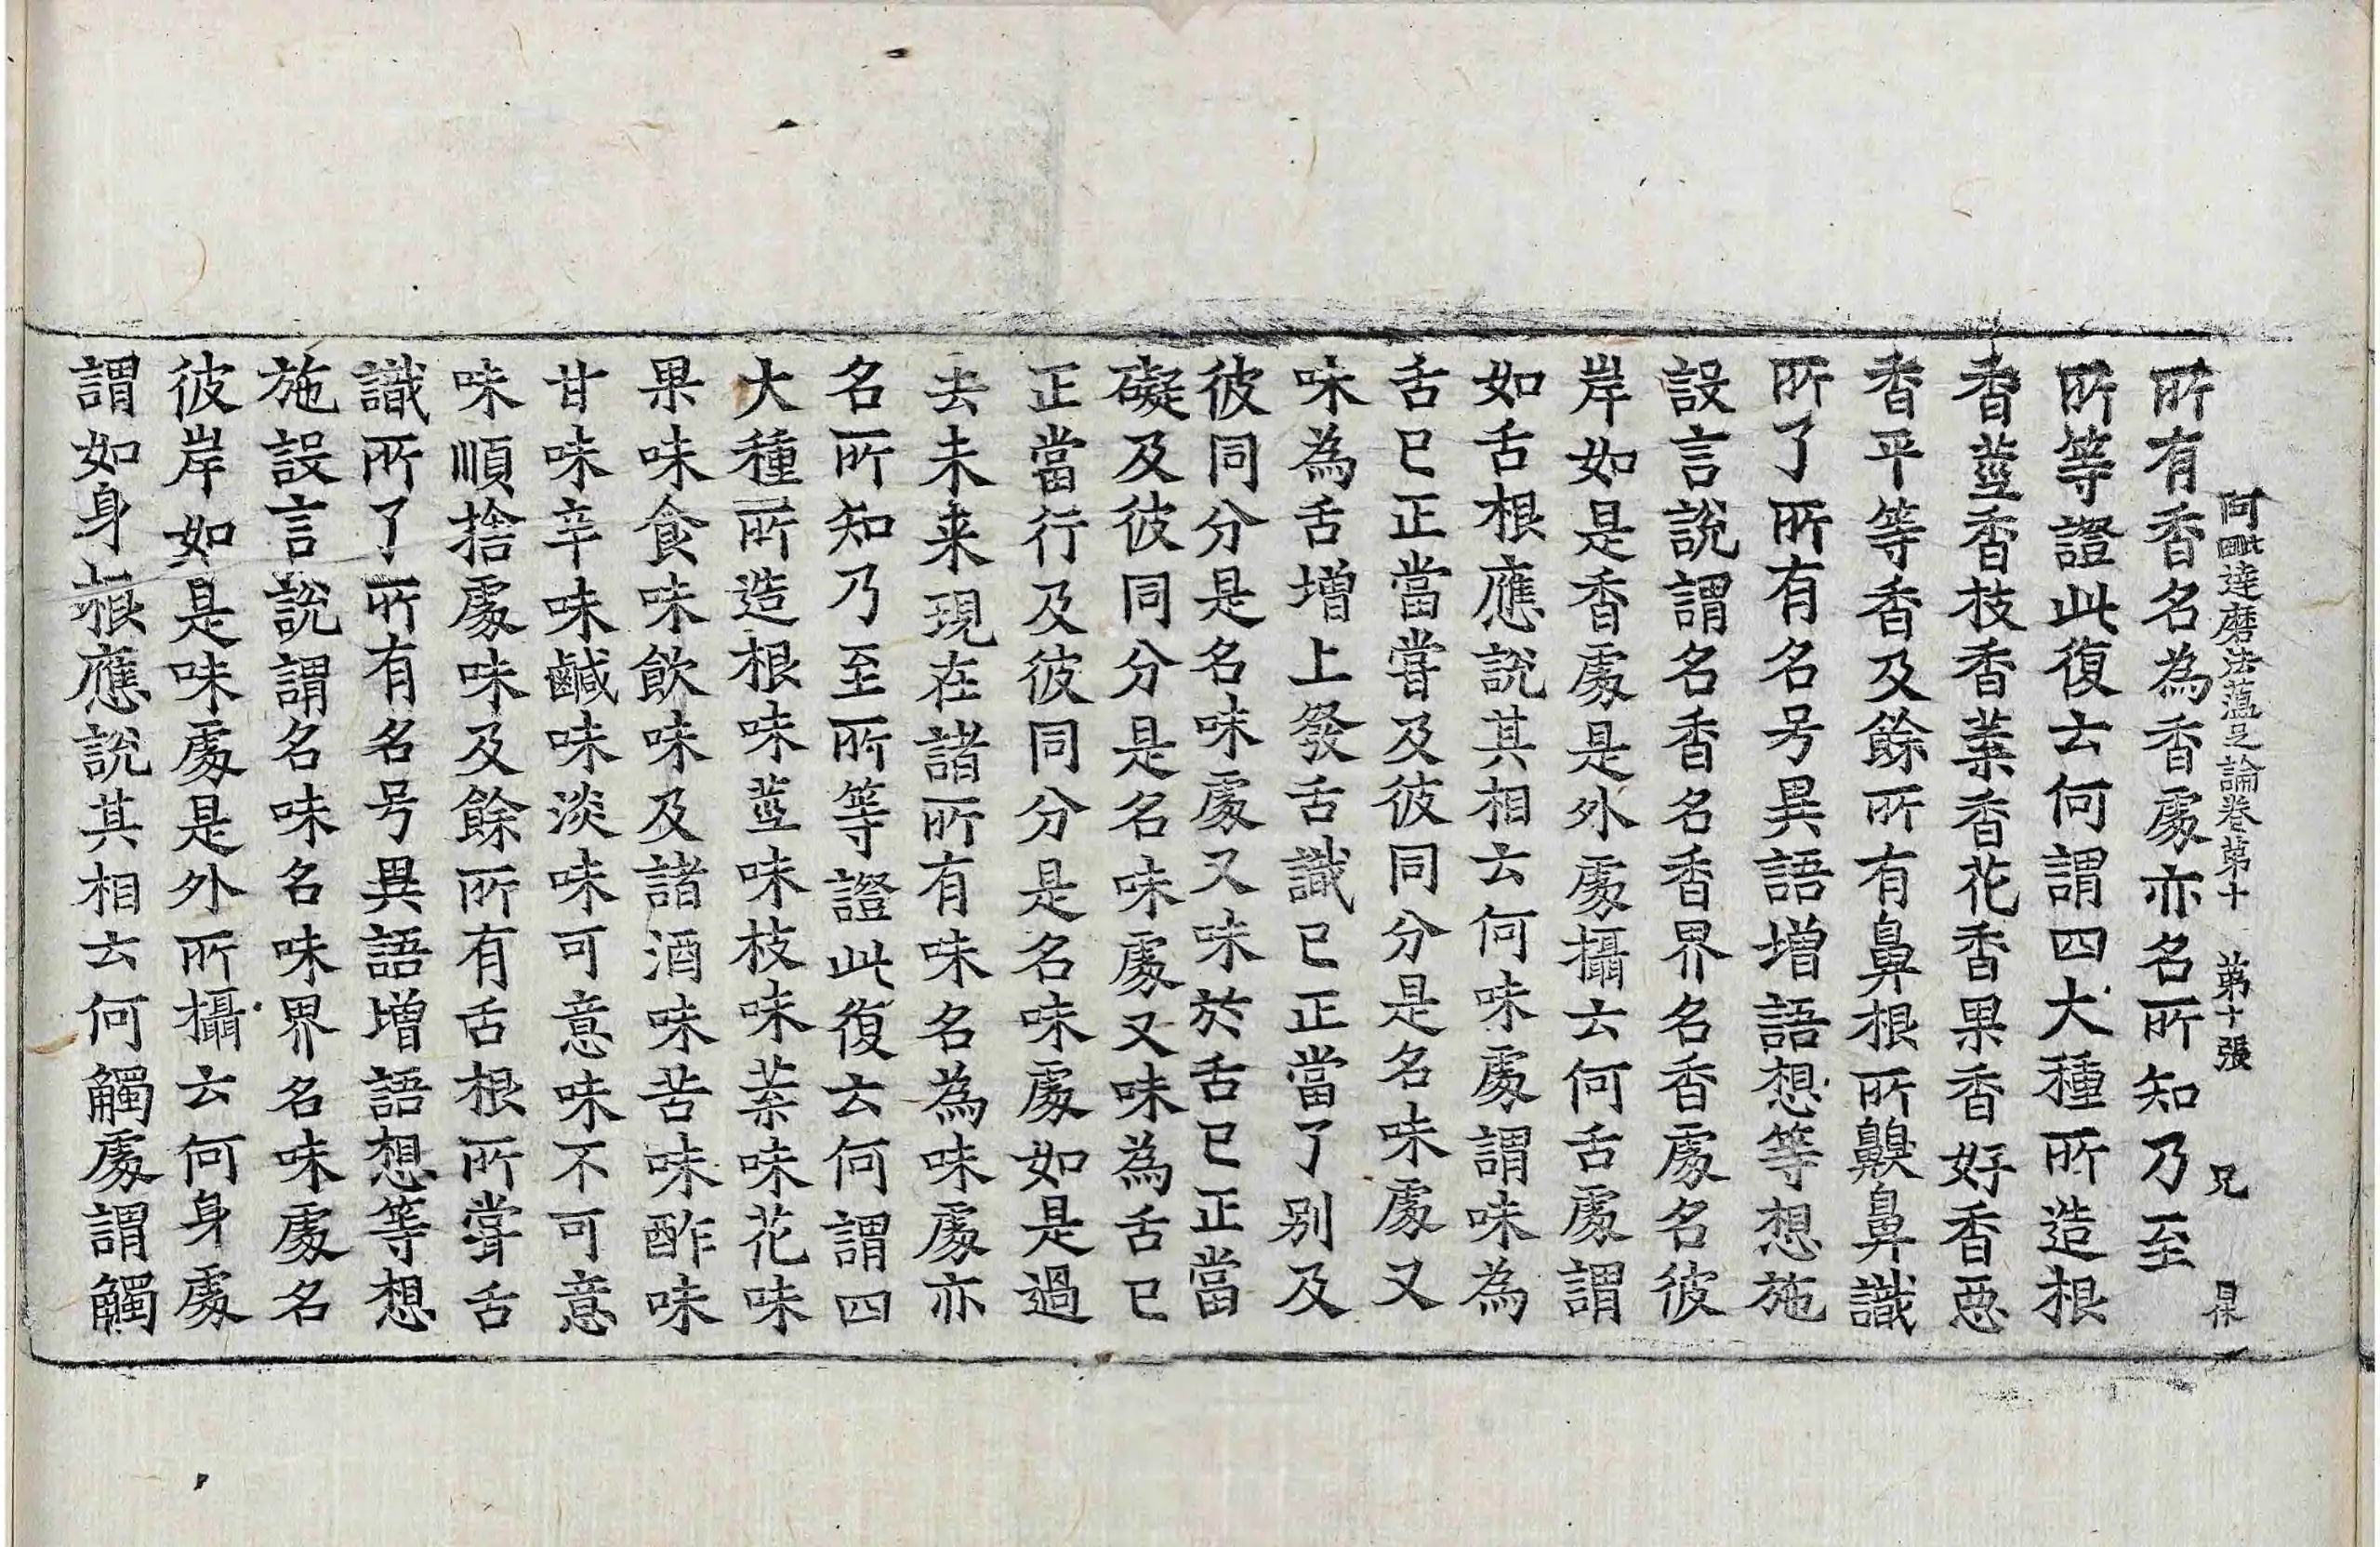 阿毗達磨法蘊足論卷第十　第十張　兄
所有香名為香處亦名所知乃至
所等證此復云何謂四大種所造根
香莖香枝香葉香花香果香好香惡
香平等香及餘所有鼻根所齅鼻識
所了所有名号異語增語想等想施
設言說謂名香名香界名香處名彼
岸如是香處是外處攝云何舌處謂
如舌根應說其相云何味處謂味為
舌已正當嘗及彼同分是名味處又
味為舌增上發舌識已正當了別及
彼同分是名味處又味於舌已正當
礙及彼同分是名味處又味為舌已
正當行及彼同分是名味處如是過
去未来現在諸所有味名為味處亦
名所知乃至所等證此復云何謂四
大種所造根味莖味枝味葉味花味
果味食味飲味及諸酒味苦味酢味
甘味辛味鹹味淡味可意味不可意
味順捨處味及餘所有舌根所嘗舌
識所了所有名号異語增語想等想
施設言說謂名味名味界名味處名
彼岸如是味處是外所攝云何身處
謂如身根應說其相云何觸處謂觸